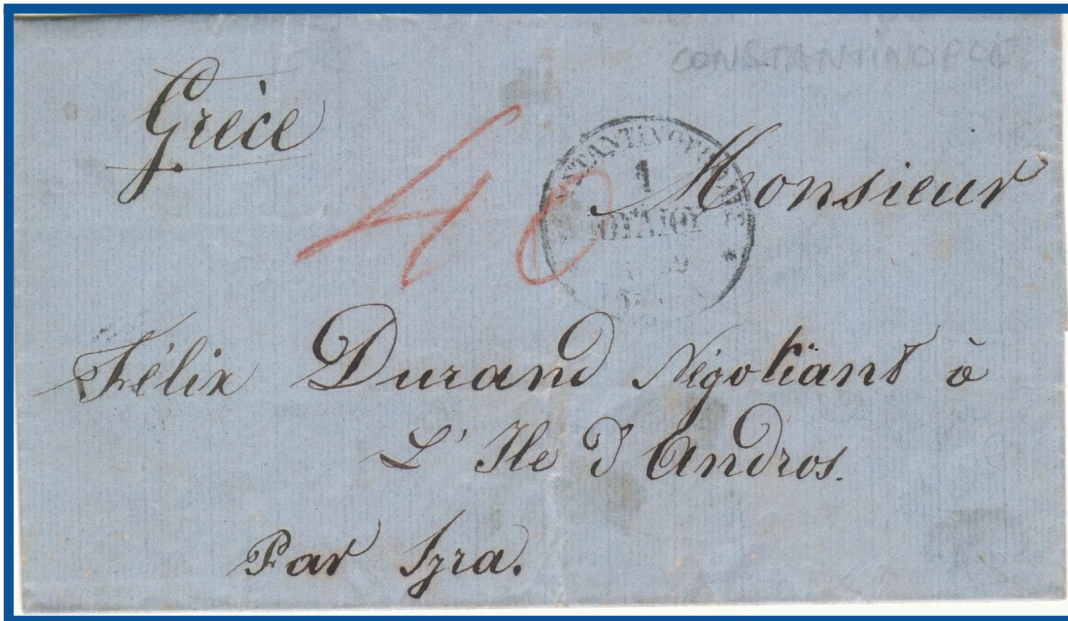 CONSTANTINOPLE
Grèce
40
1
Monsieur
Félix Durand Négotiant à
L' Ile d'Andros.
Par Syra.